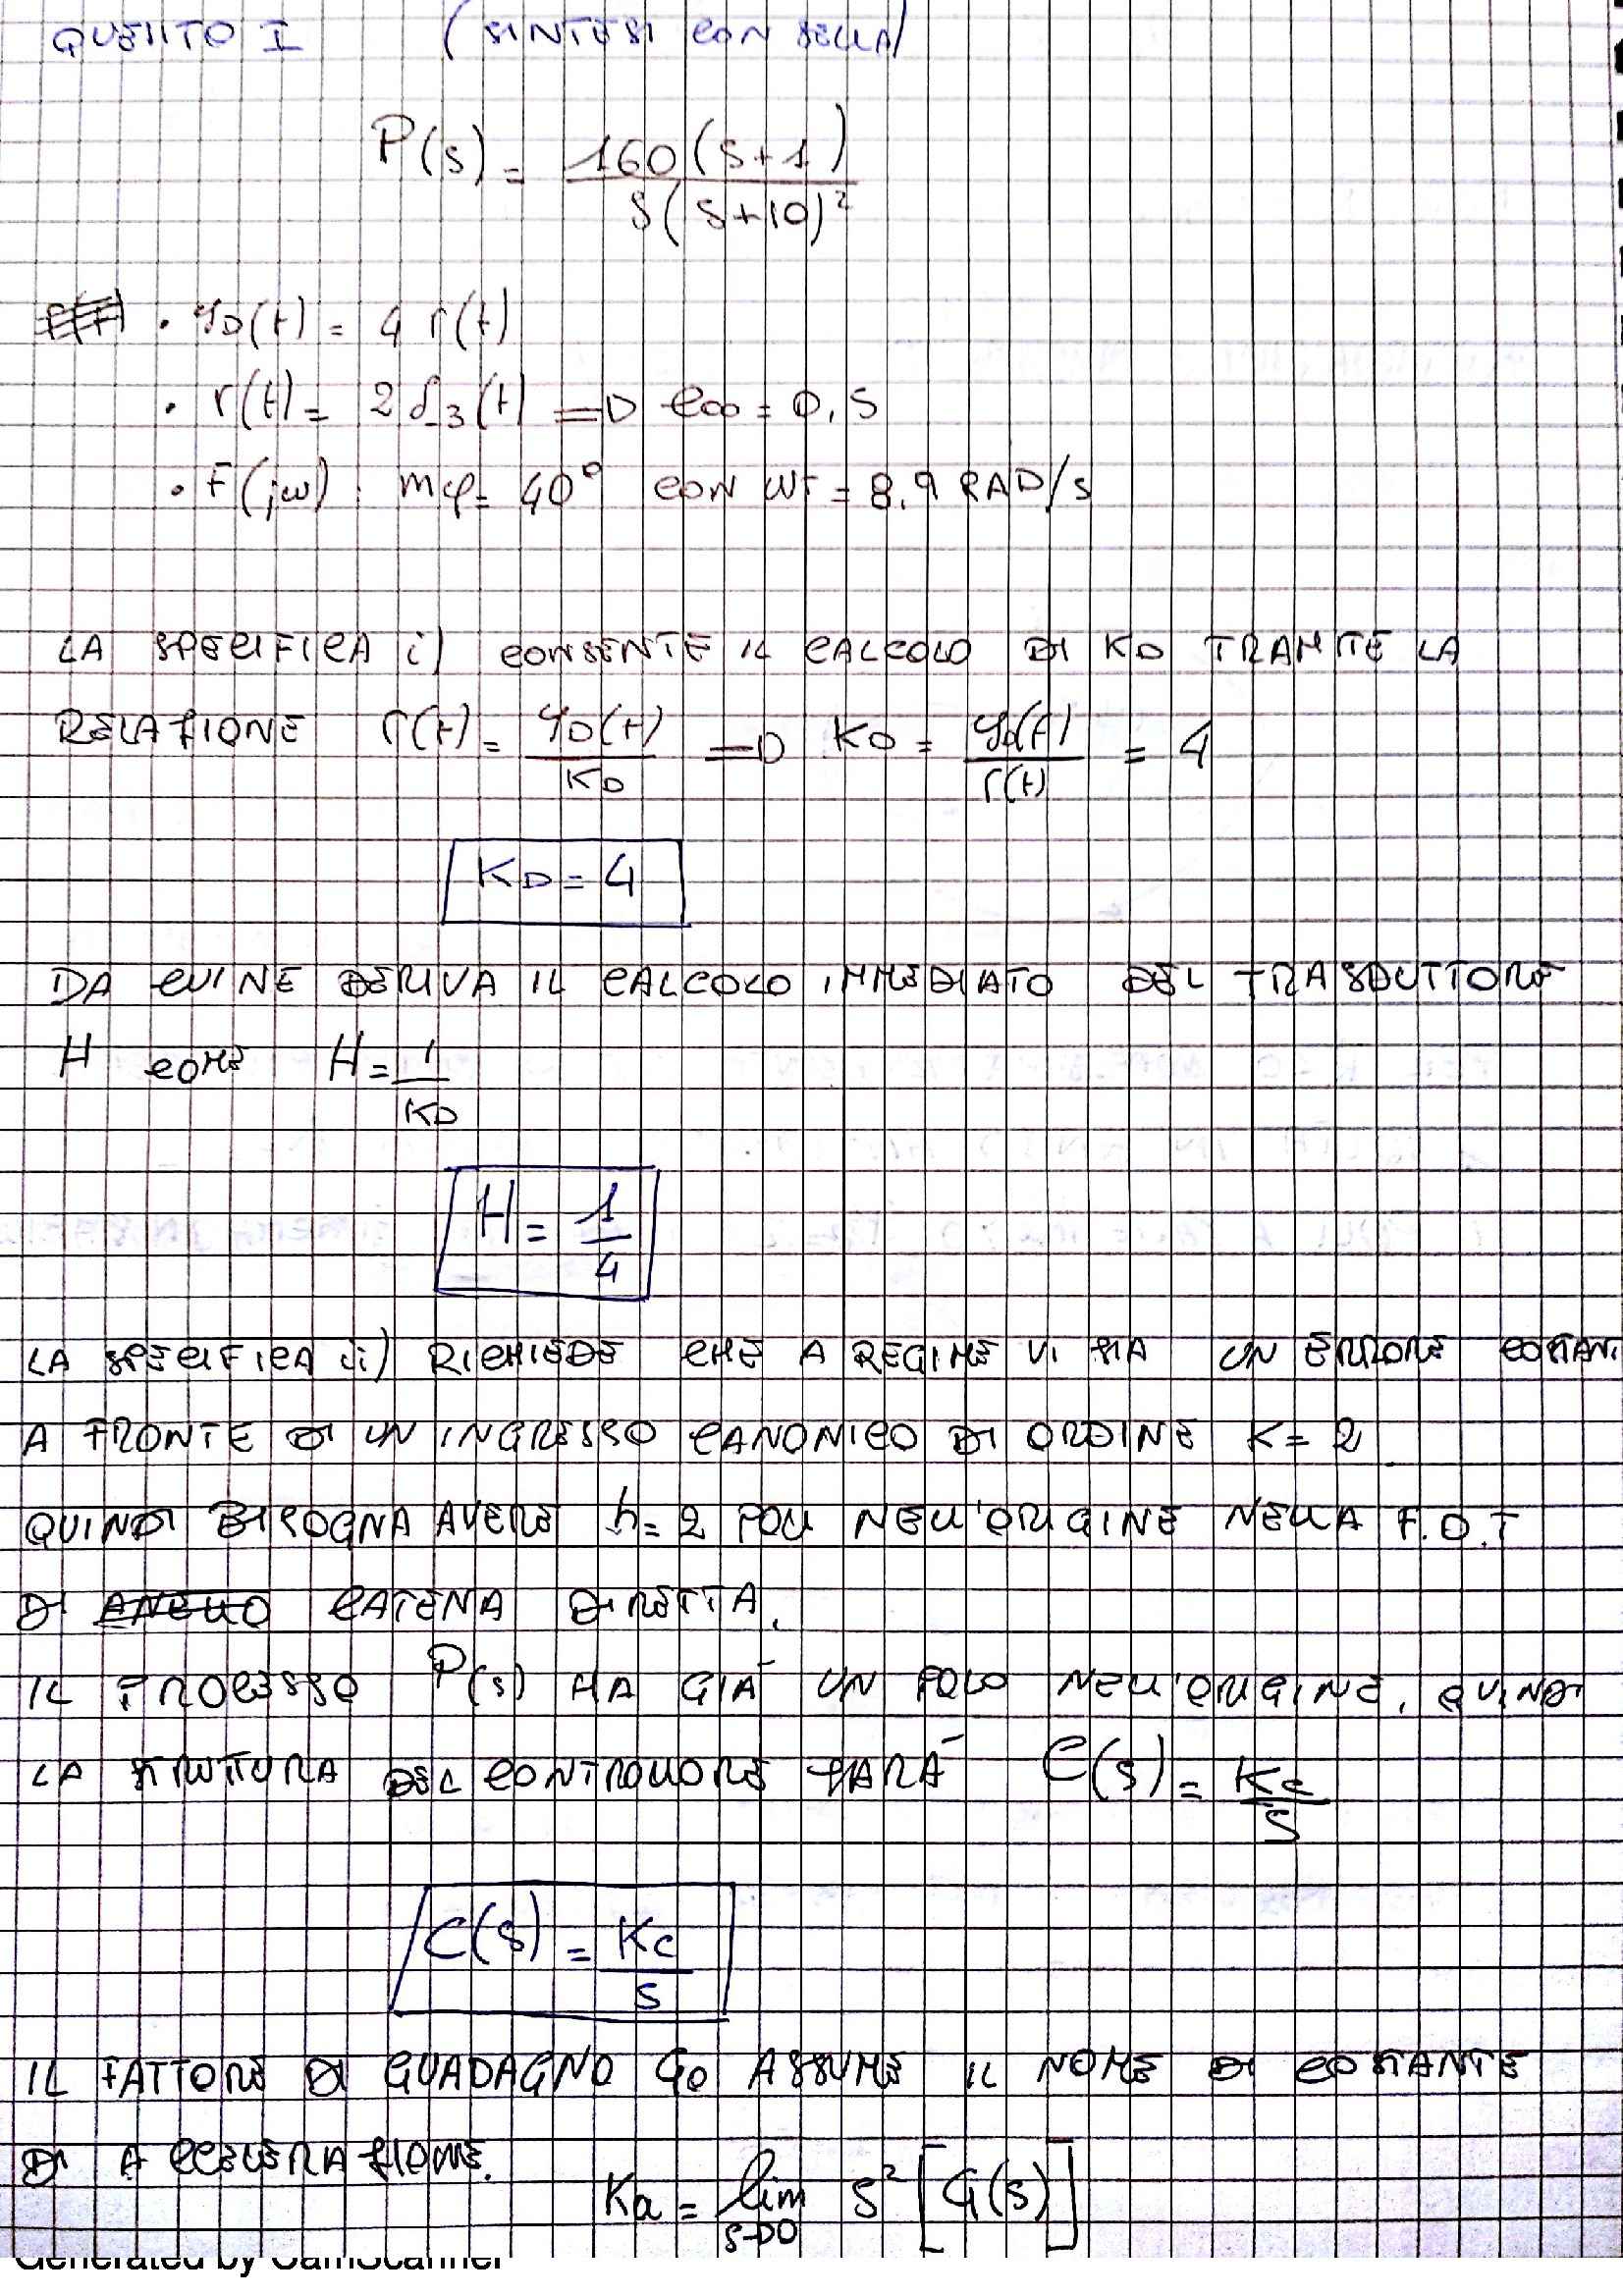 QUESITO I (SINTESI CON SELLA)
P(s) = 160(s+1) / s(s+10)²
• yD(t) = 4 r(t)
• r(t) = 2 δ-3(t) => e∞ = 0,5
• F(jω): mφ = 40° CON ωt = 8.9 RAD/s
LA SPECIFICA i) CONSENTE IL CALCOLO DI KD TRAMITE LA
RELAZIONE r(t) = yD(t) / KD => KD = yD(t) / r(t) = 4
KD = 4
DA CUI NE DERIVA IL CALCOLO IMMEDIATO DEL TRASDUTTORE
H COME H = 1 / KD
H = 1 / 4
LA SPECIFICA ii) RICHIEDE CHE A REGIME VI SIA UN ERRORE COSTAN
A FRONTE DI UN INGRESSO CANONICO DI ORDINE K = 2
QUINDI BISOGNA AVERE h = 2 POLI NELL'ORIGINE NELLA F.D.T
DI ANELLO CATENA DIRETTA.
IL PROCESSO P(s) HA GIÀ UN POLO NELL'ORIGINE, QUINDI
LA STRUTTURA DEL CONTROLLORE SARÀ C(s) = Kc / s
C(s) = Kc / s
IL FATTORE DI GUADAGNO G0 ASSUME IL NOME DI COSTANTE
DI ACCELERAZIONE. Ka = lim s->0 s² [G(s)]
Generated by CamScanner